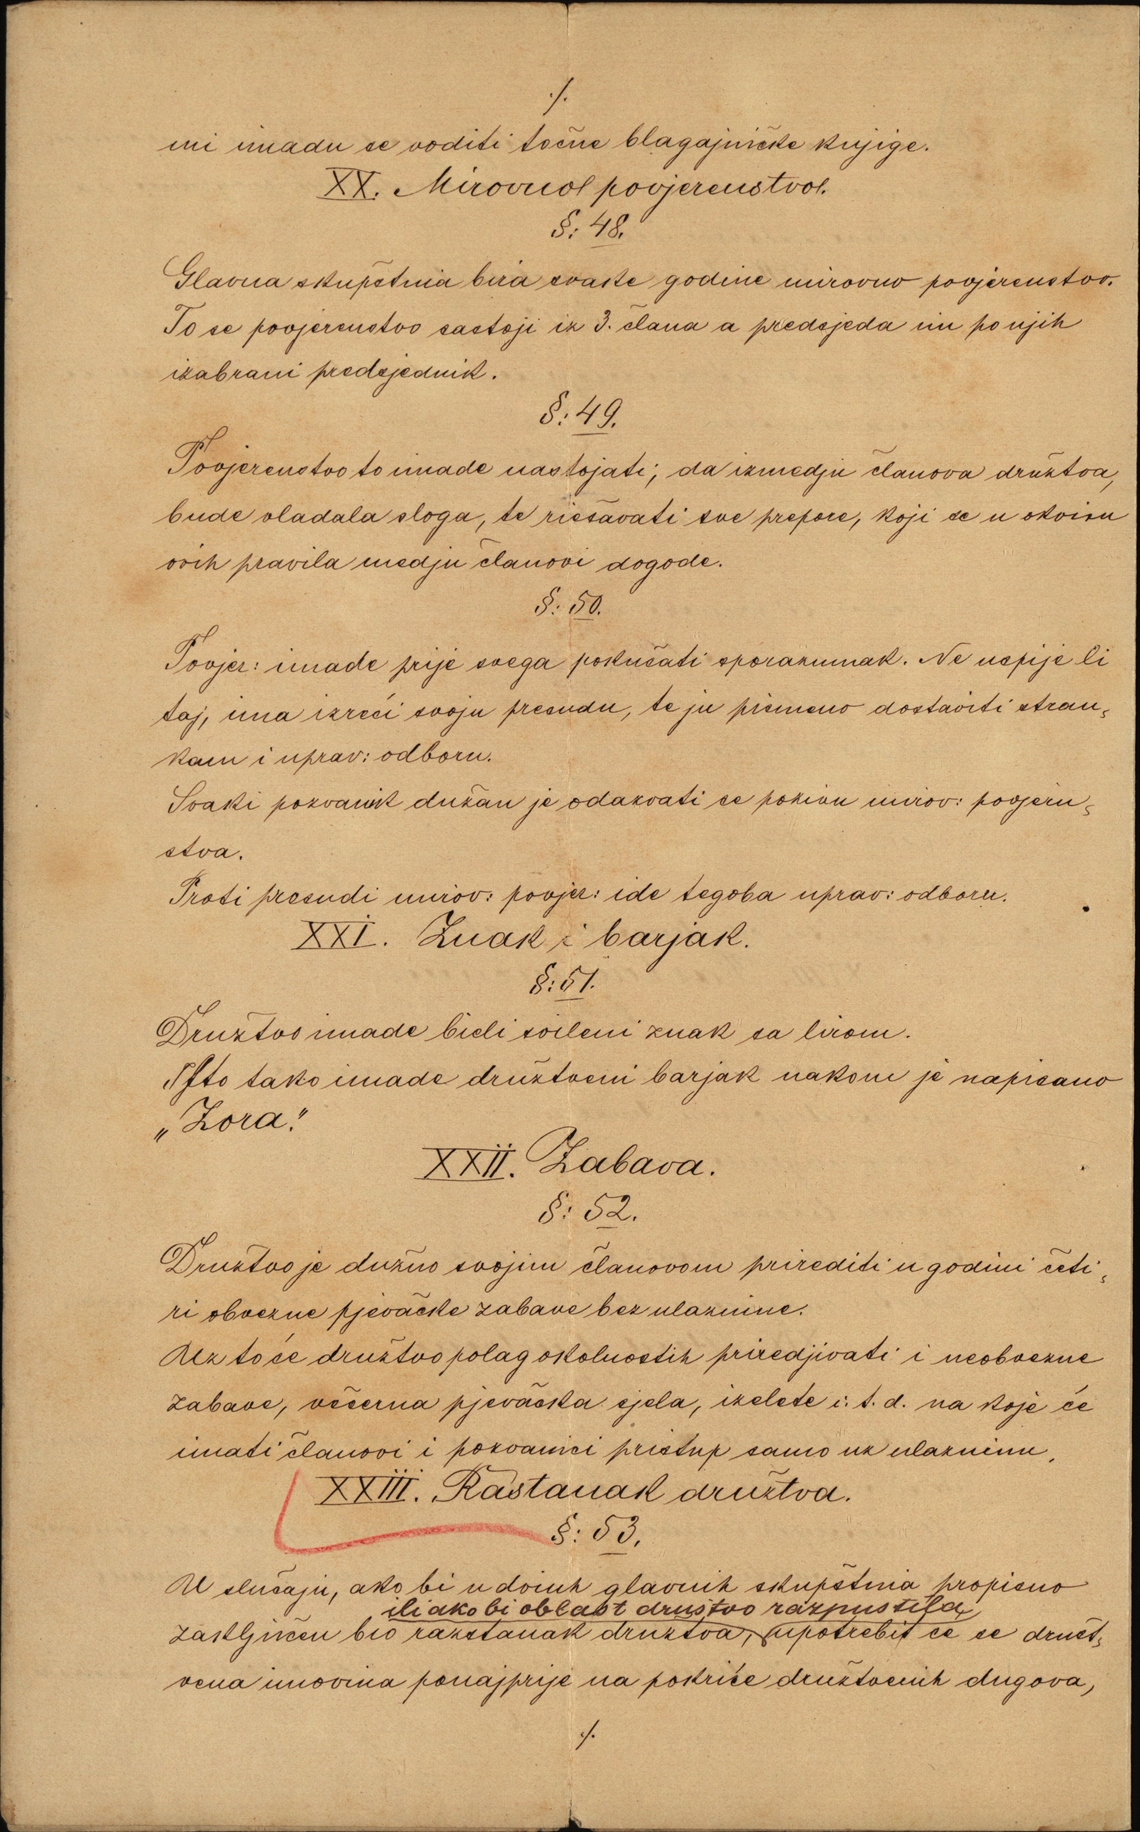 ./.
mi imadu se voditi točne blagajničke knjige.
XX. Mirovno povjerenstvo.
§: 48.
Glavna skupština bira svake godine mirovno povjerenstvo.
To se povjerenstvo sastoji iz 3. člana a predsjeda im po njih
izabrani predsjednik.
§: 49.
Povjerenstvo to imade nastojati; da izmedju članova družtva,
bude vladala sloga, te riešavati sve prepore, koji se u okviru
ovih pravila medju članovi dogode.
§: 50.
Povjer: imade prije svega pokušati sporazumak. Ne uspije li
taj, ima izreći svoju presudu, te ju pismeno dostaviti stran-
kam i uprav: odboru.
Svaki pozvanik dužan je odazvati se pozivu mirov: povjeren-
stva.
Proti presudi mirov: povjer: ide tegoba uprav: odboru.
XXI. Znak i barjak.
§: 51.
Družtvo imade bieli svileni znak sa lirom.
Isto tako imade družtveni barjak na kom je napisano
„Zora."
XXII. Zabava.
§: 52.
Družtvo je dužno svojim članovom prirediti u godini četi-
ri obvezne pjevačke zabave bez ulaznine.
Uz to će družtvo polag okolnostih priredjivati i neobvezne
zabave, večerna pjevačka sjela, izlete i. t. d. na koje će
imati članovi i pozvanici pristup samo uz ulazninu.
XXIII. Rastanak družtva.
§: 53.
U slučaju, ako bi u dvih glavnih skupština propisno
ili ako bi oblast družtvo razpustila
zaključen bio razstanak družtva, upotrebit će se družt-
vena imovina ponajprije na pokriće družtvenih dugova,
./.